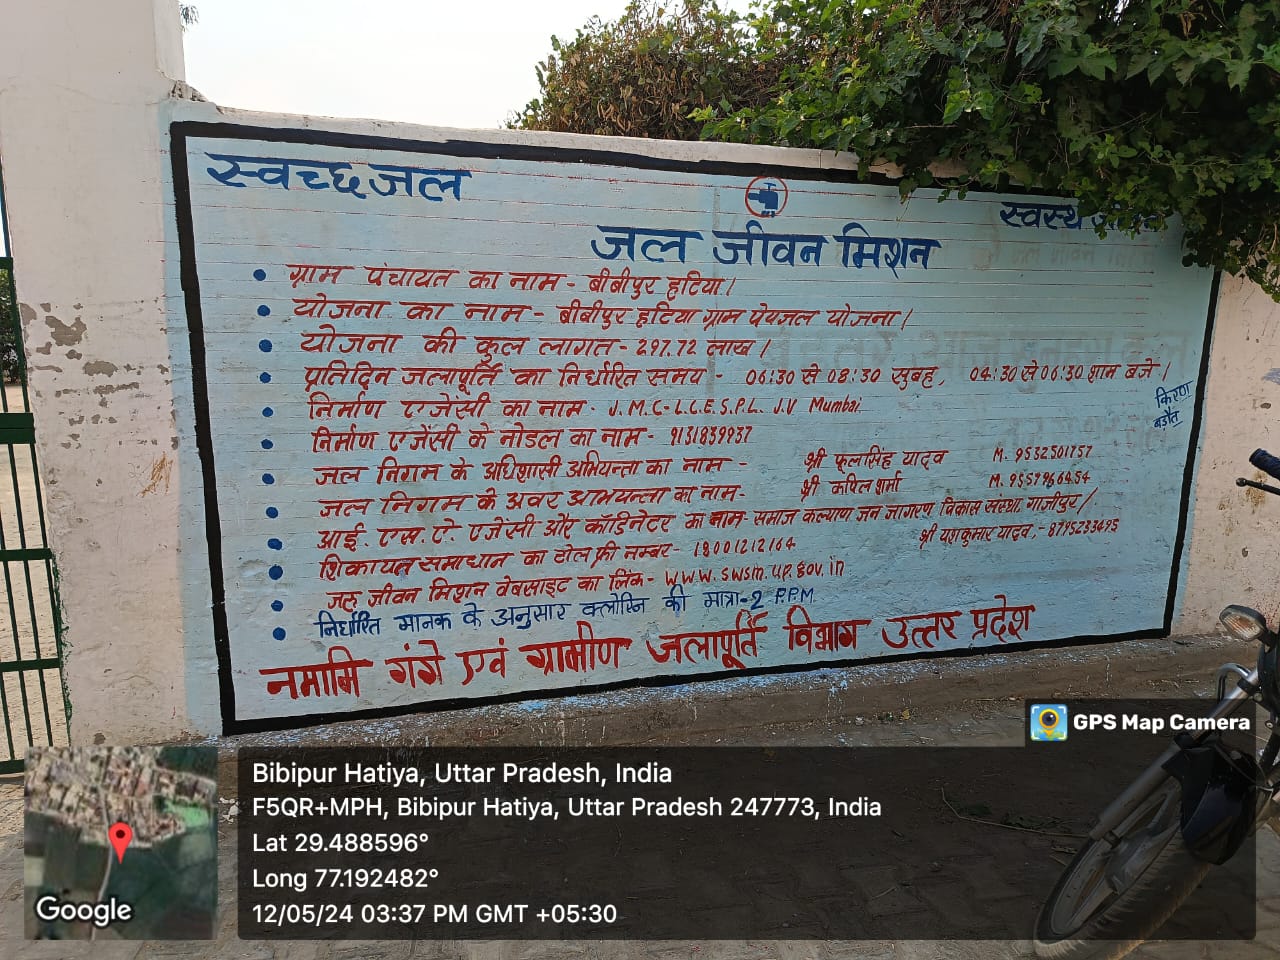 स्वच्छ जल
स्वस्थ
जल जीवन मिशन
• ग्राम पंचायत का नाम - बीबीपुर हटिया।
• योजना का नाम - बीबीपुर हटिया ग्राम पेयजल योजना।
• योजना की कुल लागत - 297.72 लाख।
• प्रतिदिन जलापूर्ति का निर्धारित समय - 06:30 से 08:30 सुबह, 04:30 से 06:30 शाम बजे।
• निर्माण एजेंसी का नाम - J.M.C-L.C.E.S.P.L. J.V Mumbai
किरण
बड़ौत
• निर्माण एजेंसी के नोडल का नाम - 9131839937
• जल निगम के अधिशासी अभियन्ता का नाम - श्री फूलसिंह यादव M. 9532501757
• जल निगम के अवर अभियन्ता का नाम - श्री कपिल शर्मा M.
• आई. एस. ए. एजेंसी और कॉडिनेटर का नाम - समाज कल्याण जन जागरण विकास संस्था. गाजीपुर/
श्री यशकुमार यादव, - 8795233495
• शिकायत समाधान का टोल फ्री नम्बर - 18001212164
• जल जीवन मिशन वेबसाइट का लिंक - www.swsm.up.gov.in
• निर्धारित मानक के अनुसार क्लोरिन की मात्रा - 2 P.P.M
नमामि गंगे एवं ग्रामीण जलापूर्ति विभाग उत्तर प्रदेश
GPS Map Camera
Bibipur Hatiya, Uttar Pradesh, India
F5QR+MPH, Bibipur Hatiya, Uttar Pradesh 247773, India
Lat 29.488596°
Long 77.192482°
12/05/24 03:37 PM GMT +05:30
Google